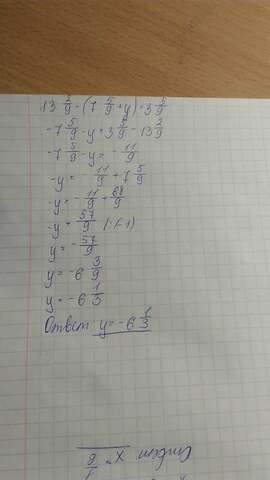 13 2/9 - (7 5/9 + y) = 3 5/9
-7 5/9 - y = 3 5/9 - 13 2/9
-7 5/9 - y = - 11/9
-y = - 11/9 + 7 5/9
-y = - 11/9 + 68/9
-y = 57/9 (·(-1)
y = - 57/9
y = -6 3/9
y = -6 1/3
Ответ: y = -6 1/3